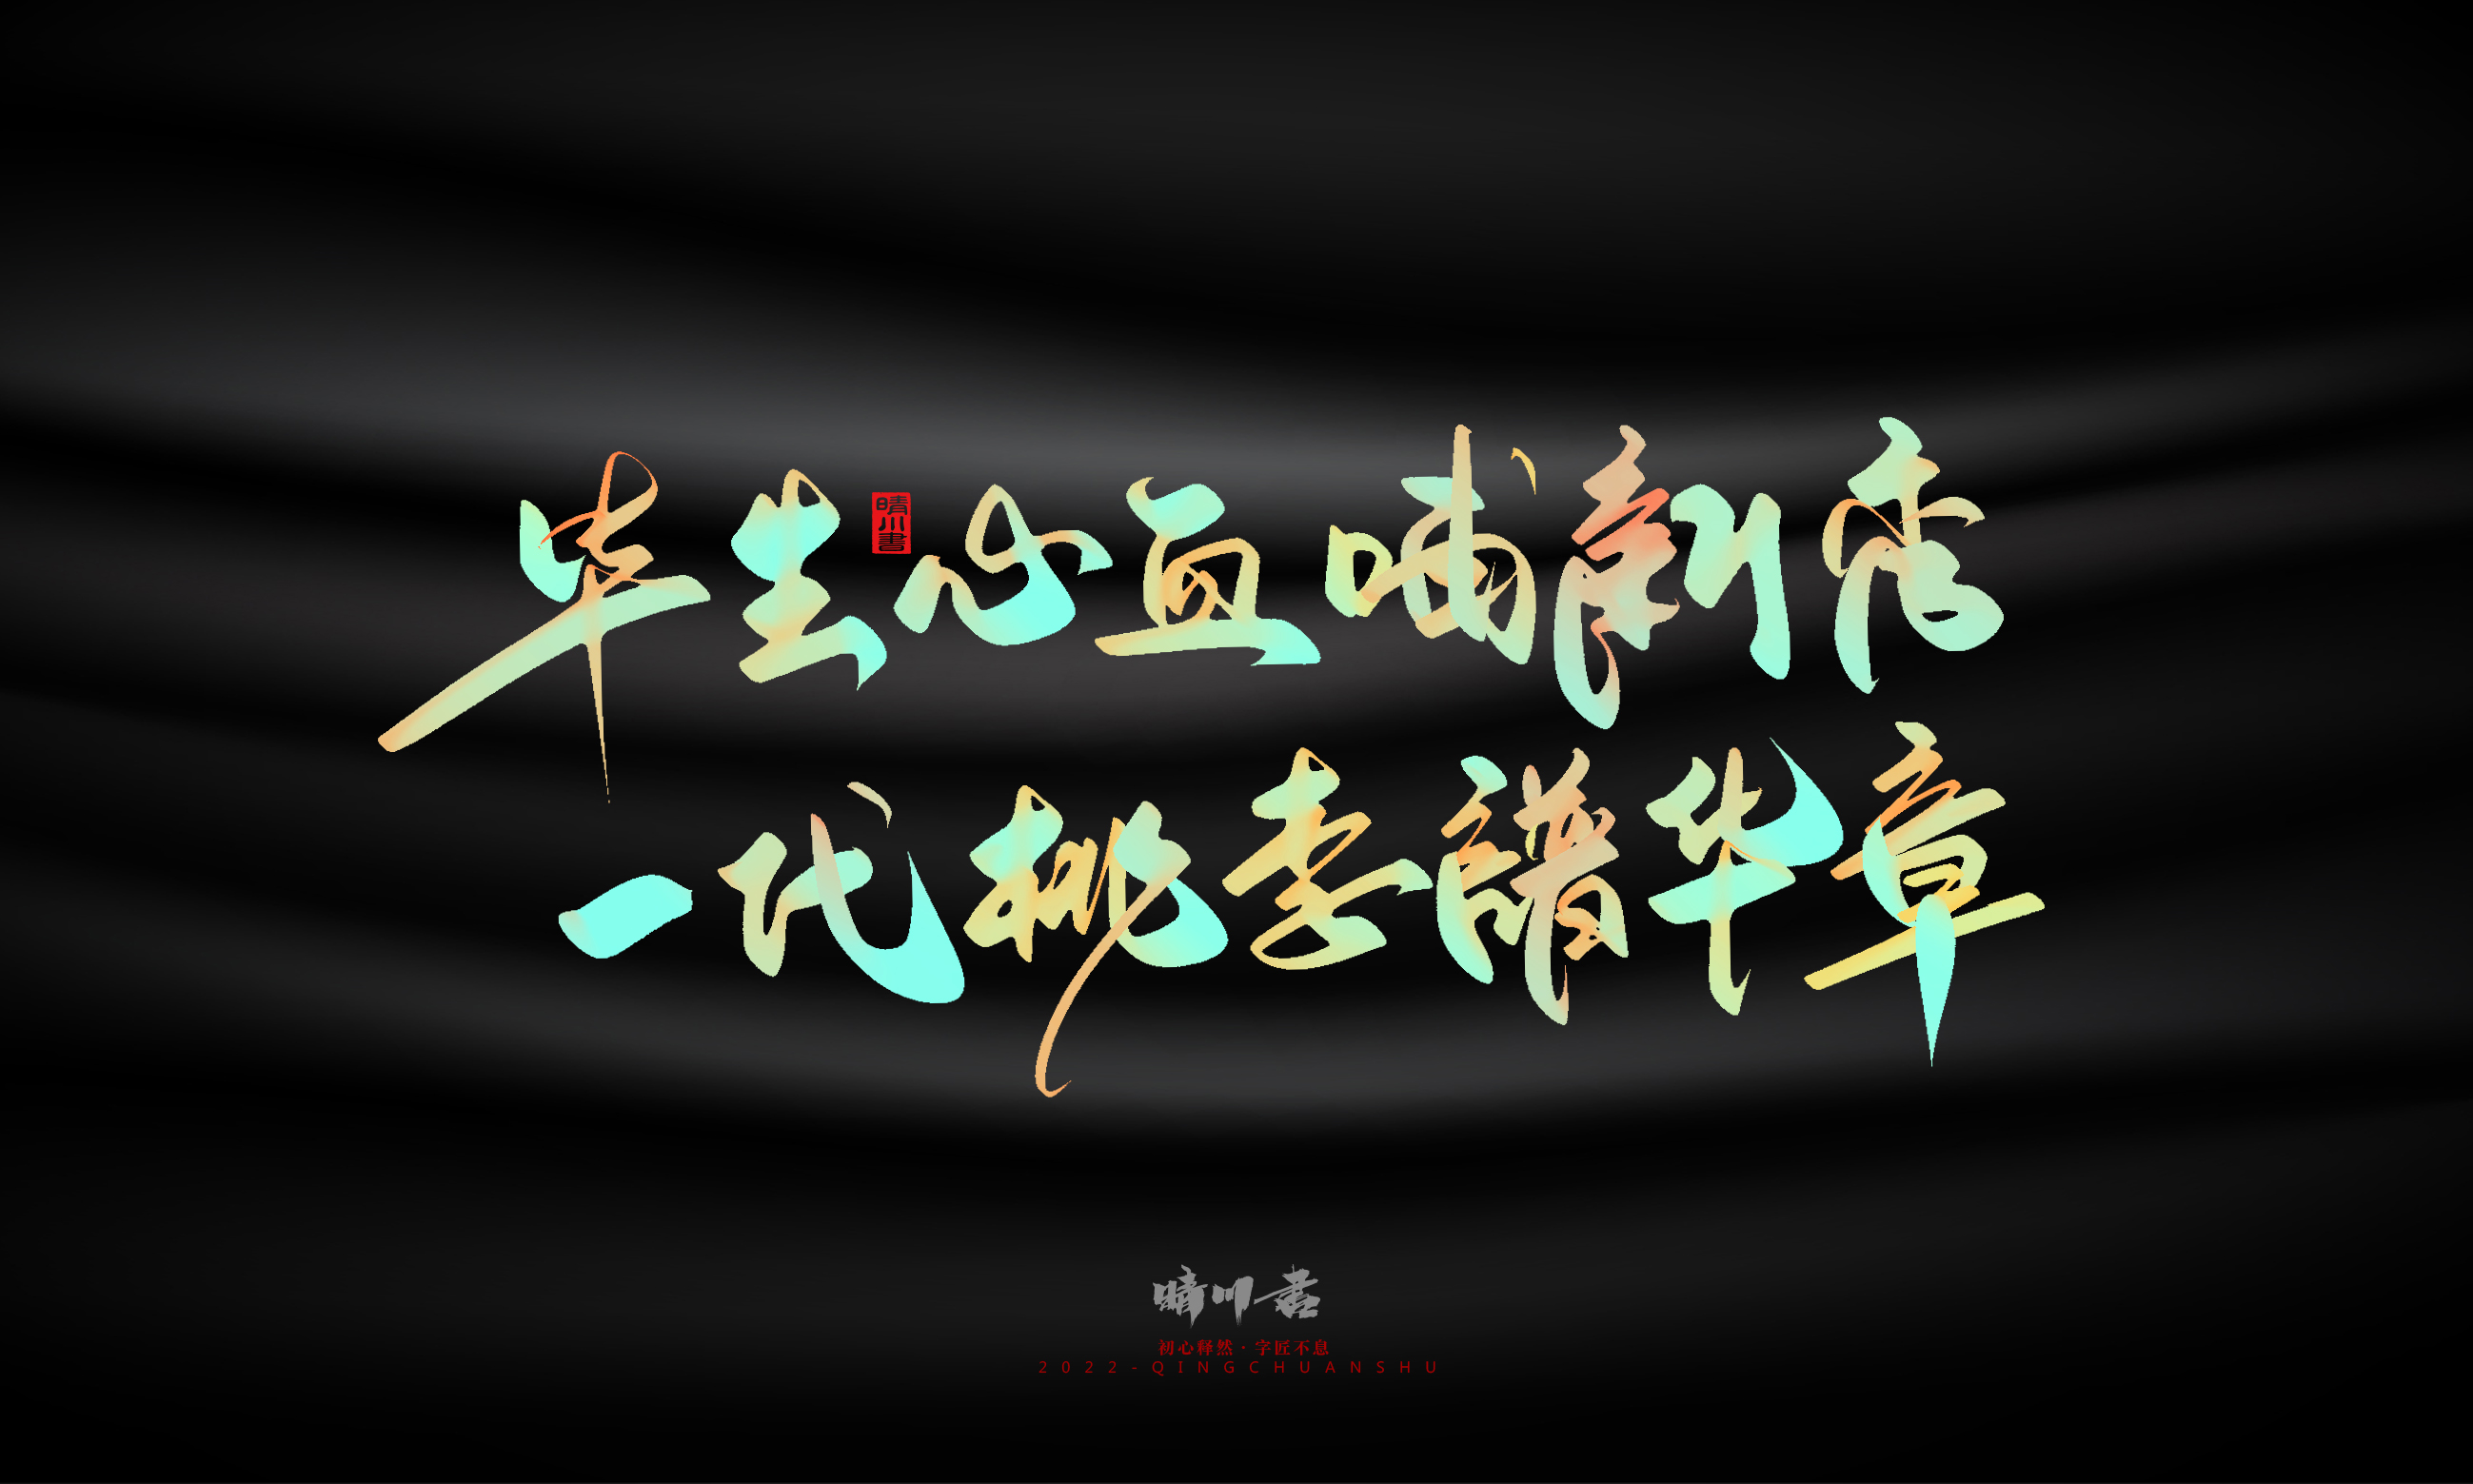 毕生心血哺新秀
晴川書
一代桃李谱华章
晴川书
初心释然·字匠不息
2022-QINGCHUANSHU